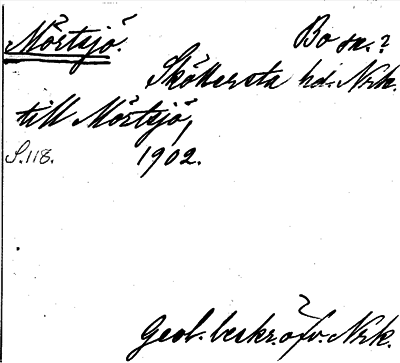 Mörtsjö. Bo sn.?
Sköllersta hd. Nrk.
till Mörtsjö,
S.118. 1902.
Geol. beskr. öfv. Nrk.